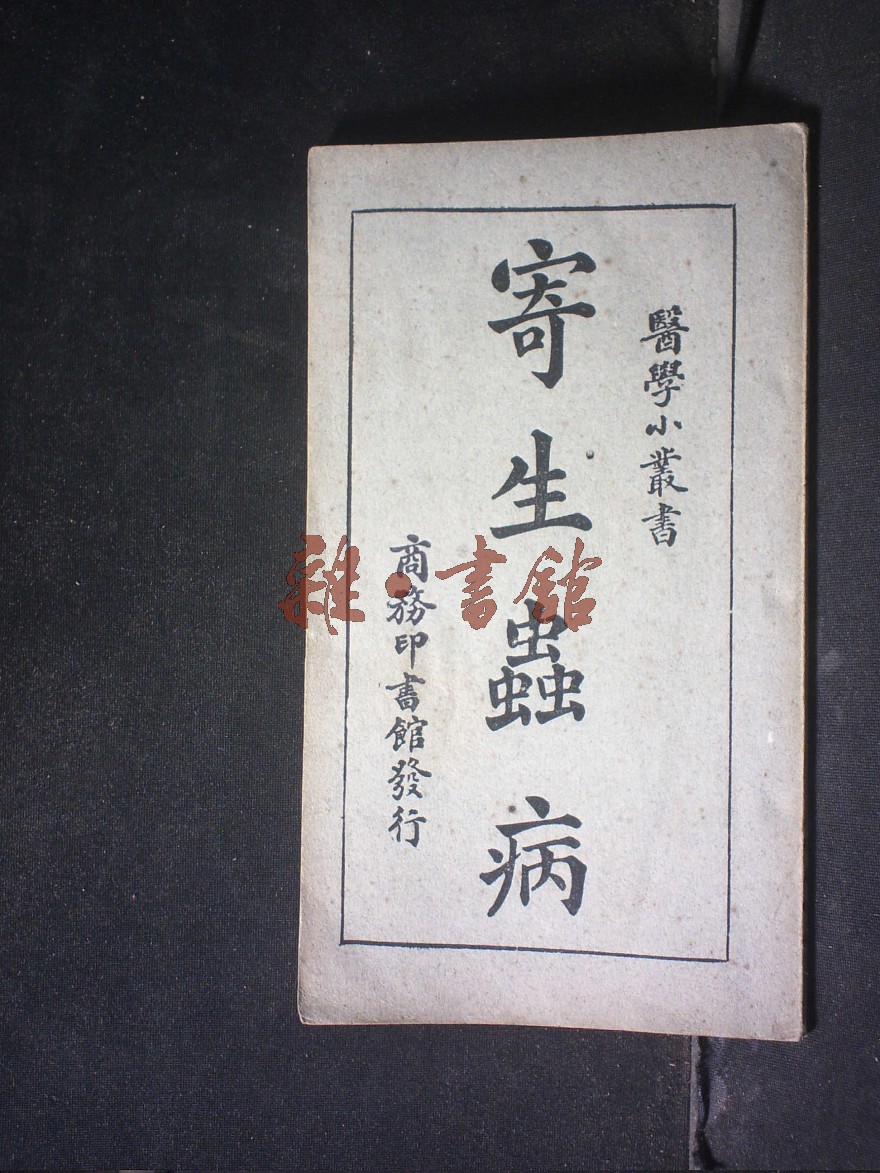 醫學小叢書
寄生蟲病
商務印書館發行
雜·書館